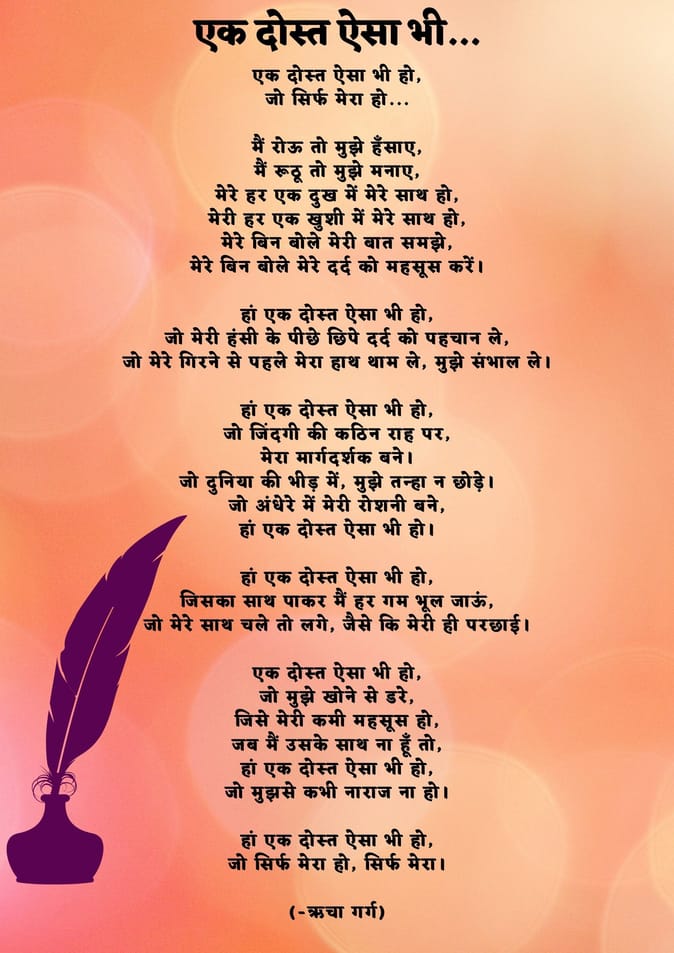 एक दोस्त ऐसा भी...
एक दोस्त ऐसा भी हो,
जो सिर्फ मेरा हो...
मैं रोऊ तो मुझे हँसाए,
मैं रूठू तो मुझे मनाए,
मेरे हर एक दुख में मेरे साथ हो,
मेरी हर एक खुशी में मेरे साथ हो,
मेरे बिन बोले मेरी बात समझे,
मेरे बिन बोले मेरे दर्द को महसूस करें।
हां एक दोस्त ऐसा भी हो,
जो मेरी हंसी के पीछे छिपे दर्द को पहचान ले,
जो मेरे गिरने से पहले मेरा हाथ थाम ले, मुझे संभाल ले।
हां एक दोस्त ऐसा भी हो,
जो जिंदगी की कठिन राह पर,
मेरा मार्गदर्शक बने।
जो दुनिया की भीड़ में, मुझे तन्हा न छोड़े।
जो अंधेरे में मेरी रोशनी बने,
हां एक दोस्त ऐसा भी हो।
हां एक दोस्त ऐसा भी हो,
जिसका साथ पाकर मैं हर गम भूल जाऊं,
जो मेरे साथ चले तो लगे, जैसे कि मेरी ही परछाई।
एक दोस्त ऐसा भी हो,
जो मुझे खोने से डरे,
जिसे मेरी कमी महसूस हो,
जब मैं उसके साथ ना हूँ तो,
हां एक दोस्त ऐसा भी हो,
जो मुझसे कभी नाराज ना हो।
हां एक दोस्त ऐसा भी हो,
जो सिर्फ मेरा हो, सिर्फ मेरा।
(-ऋचा गर्ग)